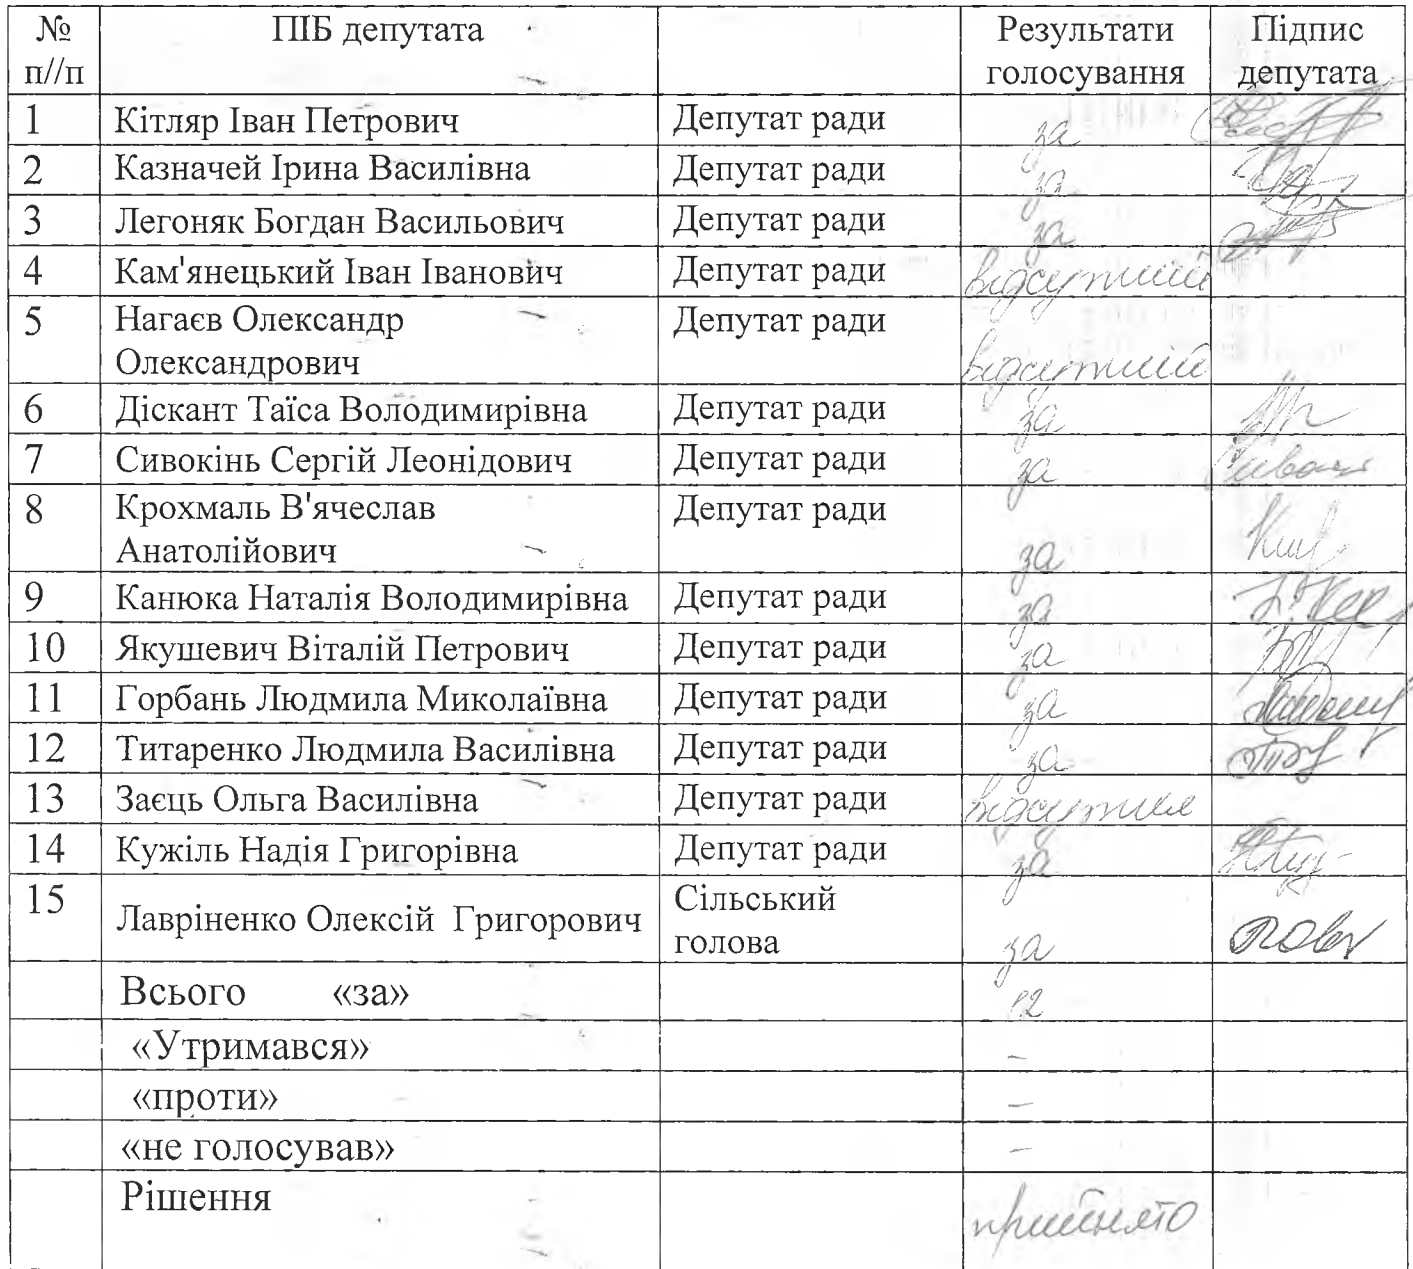 № п//п ПІБ депутата Результати голосування Підпис депутата
1 Кітляр Іван Петрович Депутат ради за
2 Казначей Ірина Василівна Депутат ради за
3 Легоняк Богдан Васильович Депутат ради за
4 Кам'янецький Іван Іванович Депутат ради відсутній
5 Нагаєв Олександр Депутат ради
Олександрович відсутній
6 Діскант Таїса Володимирівна Депутат ради за
7 Сивокінь Сергій Леонідович Депутат ради за
8 Крохмаль В'ячеслав Депутат ради
Анатолійович за
9 Канюка Наталія Володимирівна Депутат ради за
10 Якушевич Віталій Петрович Депутат ради за
11 Горбань Людмила Миколаївна Депутат ради за
12 Титаренко Людмила Василівна Депутат ради за
13 Заєць Ольга Василівна Депутат ради відсутня
14 Кужіль Надія Григорівна Депутат ради за
15 Лавріненко Олексій Григорович Сільський голова за
Всього «за» 12
«Утримався» –
«проти» –
«не голосував» –
Рішення прийнято